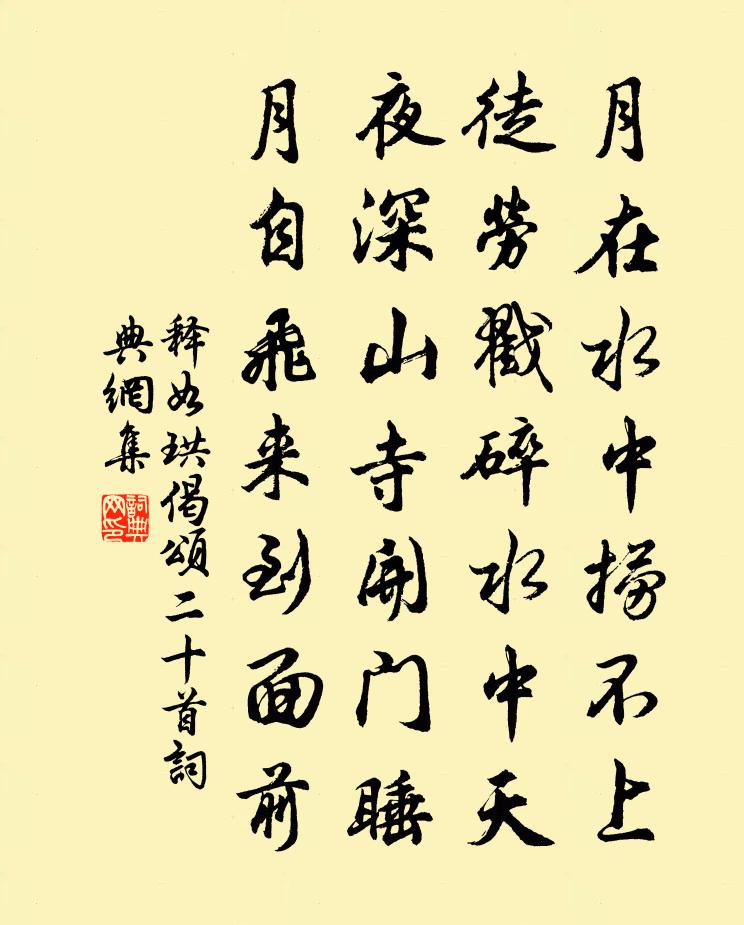 月在水中撈不上
徒勞戳碎水中天
夜深山寺開門睡
月自飛来到面前
释如珙偈頌二十首詞
典網集
詞典
网印